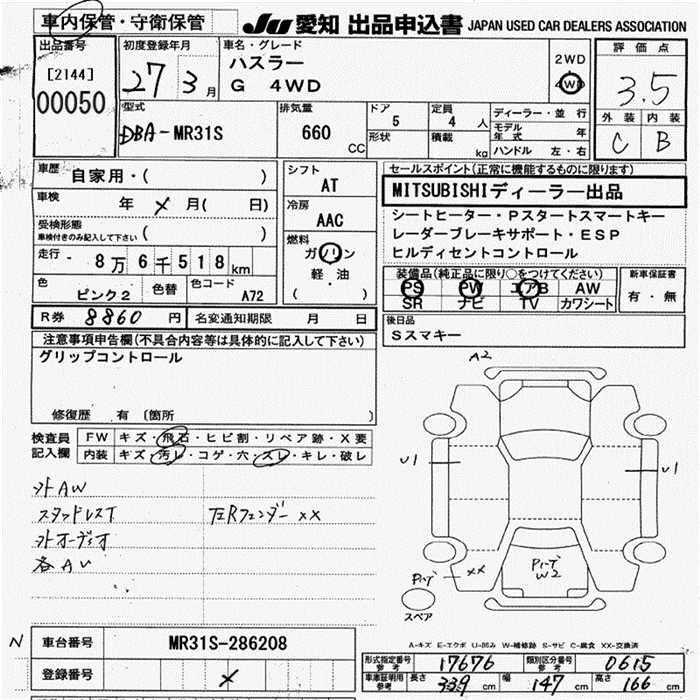 車内保管・守衛保管
JU 愛知 出品申込書 JAPAN USED CAR DEALERS ASSOCIATION
出品番号
[2144]
00050
初度登録年月
27 3 月
車名・グレード
ハスラー
G 4WD
2WD
4WD
評価点
3.5
外装 内装
C B
型式
DBA-MR31S
排気量
660
CC
ドア
5
形状
定員
4 人
積載
kg
ディーラー・並行
モデル年式 年
ハンドル 左・右
車歴
自家用・( )
車検
年 メ 月( 日)
受検形態
車検付きのみ記入して下さい ( )
走行
- 8万6千518km
色
ピンク2
色替
色コード
A72
シフト
AT
冷房
AAC
燃料
ガソリン
軽・油
( )
セールスポイント(正常に機能するものに限る)
MITSUBISHIディーラー出品
シートヒーター・Pスタートスマートキー
レーダーブレーキサポート・ESP
ヒルディセントコントロール
装備品(純正品に限り○をつけてください)
PS PW エアB AW
SR ナビ TV カワシート
新車保証書
有・無
R券 8860 円
名変通知期限 月 日
後日品
Sスマキー
注意事項申告欄(不具合内容等は具体的に記入して下さい)
グリップコントロール
修復歴 有 〔箇所 〕
検査員
記入欄
FW キズ・飛石・ヒビ割・リペア跡・X要
内装 キズ・汚レ・コゲ・穴・スレ・キレ・破レ
外AW
スタッドレスT
左Rフェンダー XX
外オーディオ
各AU
A2
U1
U1
Pハーゲ XX
Pハーゲ
W2
スペア
A-キズ E-エクボ U-凹み W-補修跡 S-サビ C-腐食 XX-交換済
N
車台番号
MR31S-286208
登録番号
メ
形式指定番号
参考
17676
類別区分番号
参考
0615
車庫証明用
参考
長さ 339 cm
幅 147 cm
高さ 166 cm